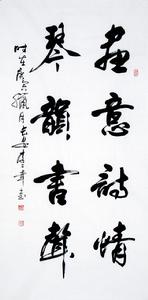 畫意詩情
琴韻書聲
時在庚寅臘月